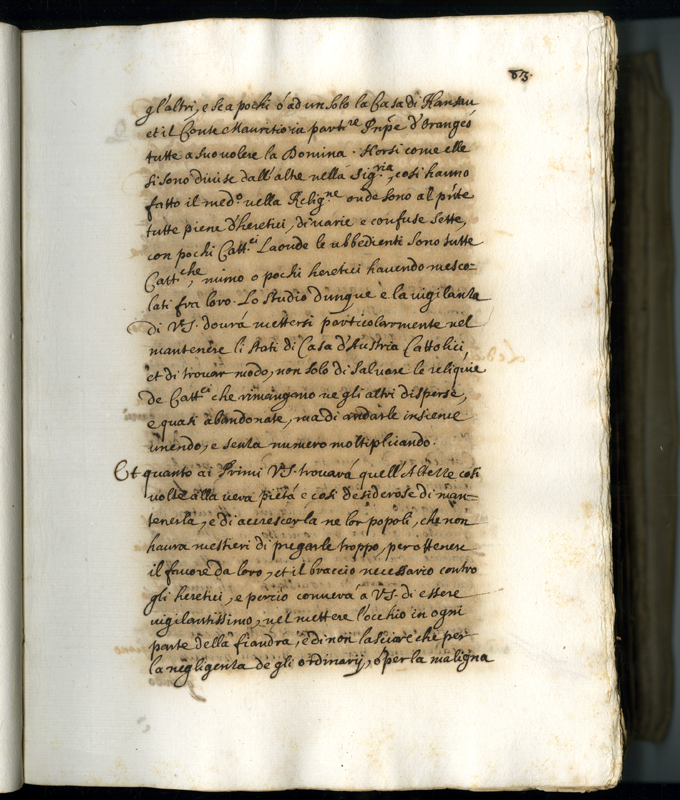 63.
gl'altri, e se a pochi ó ad un solo la Casa di Nansau
et il Conte Mauritio ia parti.re Pnpe d'Oranges
tutte a suo volere la Domina. Horsi come elle
si sono divise dall'altre nella Sig.ria, cosi hanno
fatto il med.o nella Relig.ne onde sono al pñte
tutte piene d'heretici, di varie e confuse sette,
con pochi Catt.ci Laonde le ubbedienti sono tutte
Catt.che, niuno o pochi heretici havendo mesco-
lati fra loro. Lo studio dunque è la vigilanza
di V.S. dourá mettersi particolarmente nel
mantenere li stati di Casa d'Austria Cattolici,
et di trovar modo, non solo di salvare le reliquie
de Catt.ci che rimangono ne gli altri disperse,
e quasi abandonate, ma di andarle insieme
unendo, e senza numero moltiplicando.
Et quanto ai Primi V.S. trovará quell'Altezze cosi
volte alla vera pietá e cosi desiderose di man-
tenerla, e di accrescerla ne lor popoli, che non
haura mestieri di pregarle troppo, per ottenere
il favore da loro, et il braccio necessario contro
gli heretici, e perciò converá a V.S. di essere
vigilantissimo, nel mettere l'occhio in ogni
parte della fiandra, e di non lasciare che per
la negligenza de gli ordinarij, o per la maligna